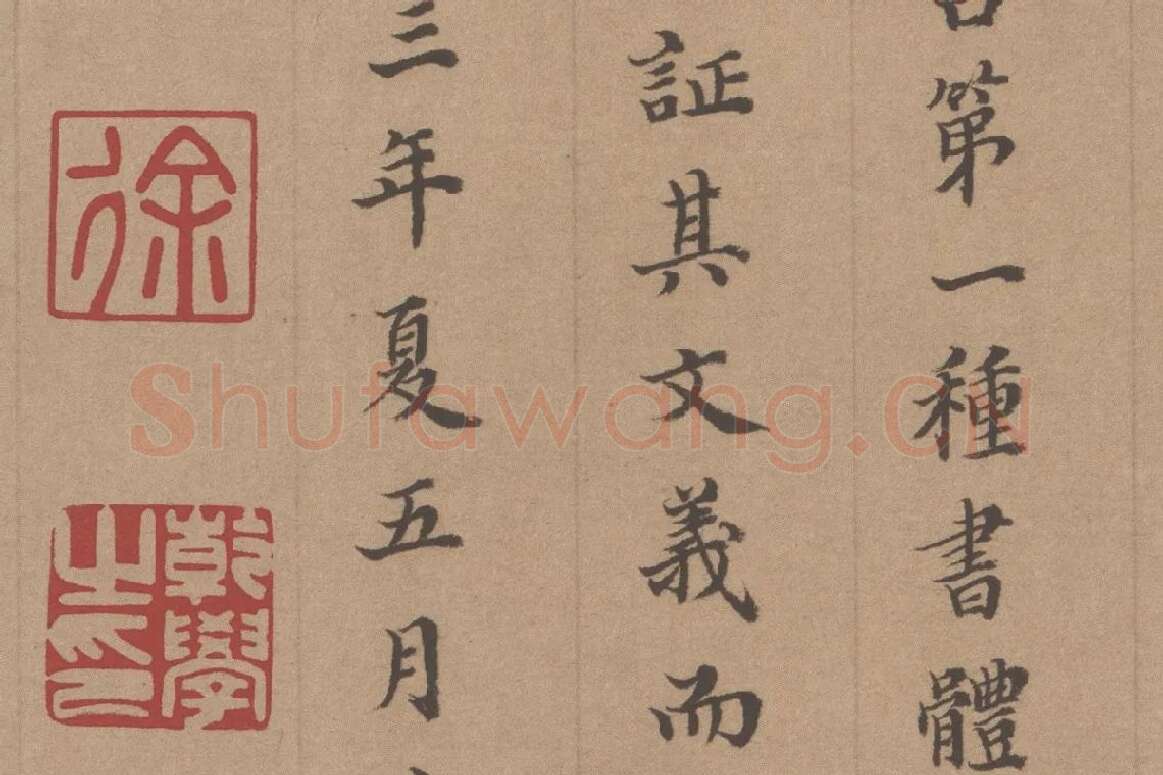 第一種書體
証其文義而
三年夏五月
徐
乾學之印
Shufawang.cn